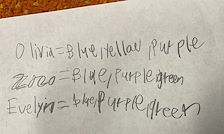 Olivia=Blue,Yellow,purple
=Blue,purple,green
Evelyn=blue,purple,green